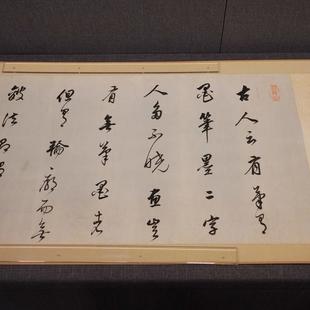 古人云有筆有
墨筆墨二字
人多不曉畫豈
有無筆墨者
但有輪廓而無
皴法即謂